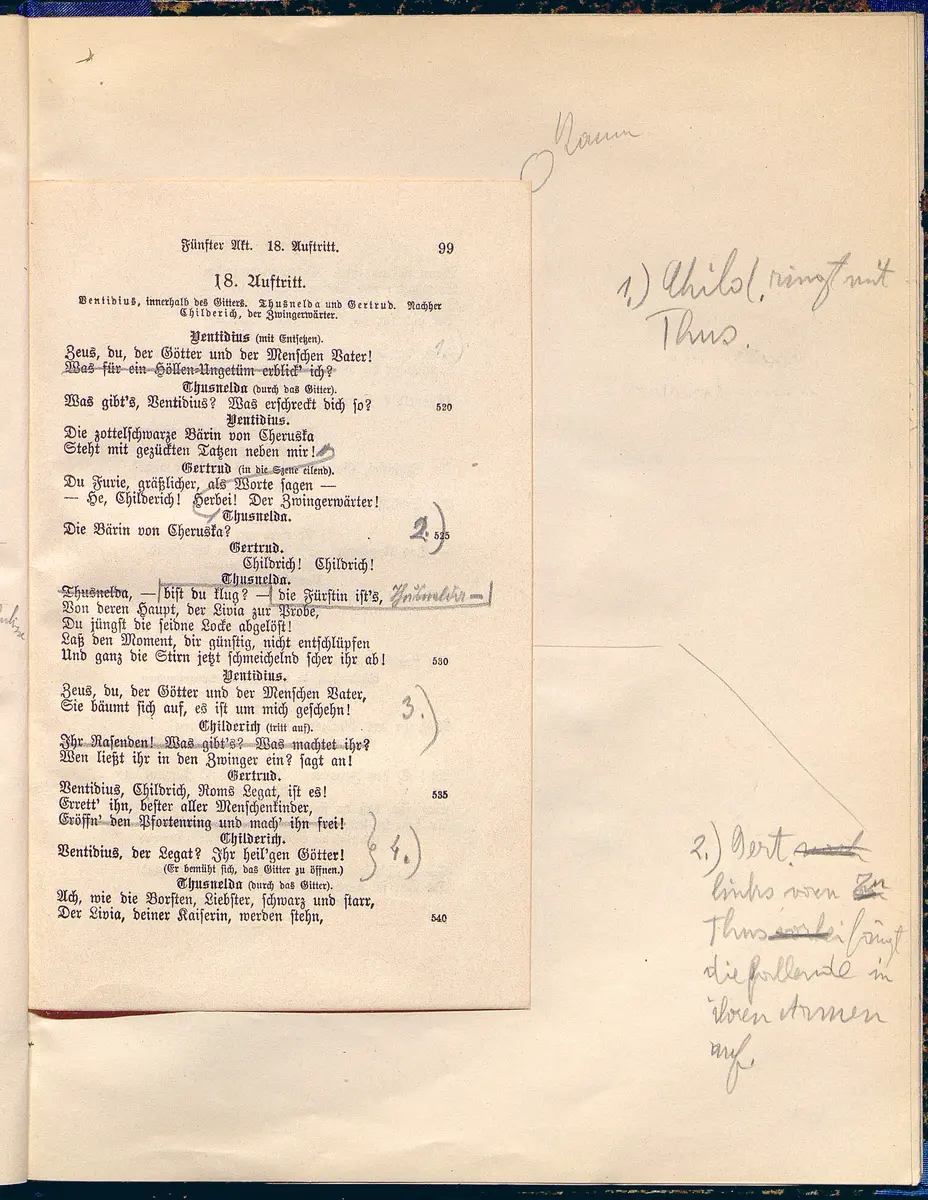 Fünfter Akt. 18. Auftritt. 99
18. Auftritt.
Ventidius, innerhalb des Gitters. Thusnelda und Gertrud. Nachher
Childerich, der Zwingerwärter.
Ventidius (mit Entsetzen).
Zeus, du, der Götter und der Menschen Vater!
1.)
Was für ein Höllen-Ungetüm erblick' ich?
Thusnelda (durch das Gitter).
Was gibt's, Ventidius? Was erschreckt dich so? 520
Ventidius.
Die zottelschwarze Bärin von Cheruska
Steht mit gezückten Tatzen neben mir!
Gertrud (in die Szene eilend).
Du Furie, gräßlicher, als Worte sagen —
— He, Childerich! Herbei! Der Zwingerwärter!
Thusnelda.
Die Bärin von Cheruska? 2.) 525
Gertrud.
Childrich! Childrich!
Thusnelda.
Thusnelda, — bist du klug? — die Fürstin ist's, Thusnelda —
Von deren Haupt, der Livia zur Probe,
Du jüngst die seidne Locke abgelöst!
Laß den Moment, dir günstig, nicht entschlüpfen
Und ganz die Stirn jetzt schmeichelnd scher ihr ab! 530
Ventidius.
Zeus, du, der Götter und der Menschen Vater,
Sie bäumt sich auf, es ist um mich geschehn!
3.)
Childerich (tritt auf).
Ihr Rasenden! Was gibt's? Was machtet ihr?
Wen ließt ihr in den Zwinger ein? sagt an!
Gertrud.
Ventidius, Childrich, Roms Legat, ist es! 535
Errett' ihn, bester aller Menschenkinder,
Eröffn' den Pfortenring und mach' ihn frei!
Childerich.
Ventidius, der Legat? Ihr heil'gen Götter! 4.)
(Er bemüht sich, das Gitter zu öffnen.)
Thusnelda (durch das Gitter).
Ach, wie die Borsten, Liebster, schwarz und starr,
Der Livia, deiner Kaiserin, werden stehn, 540
1.) Child. ringt mit
Thus.
2.) Gert. nach
links vorn zu
Thus vorbei fängt
die fallende in
ihren Armen
auf.